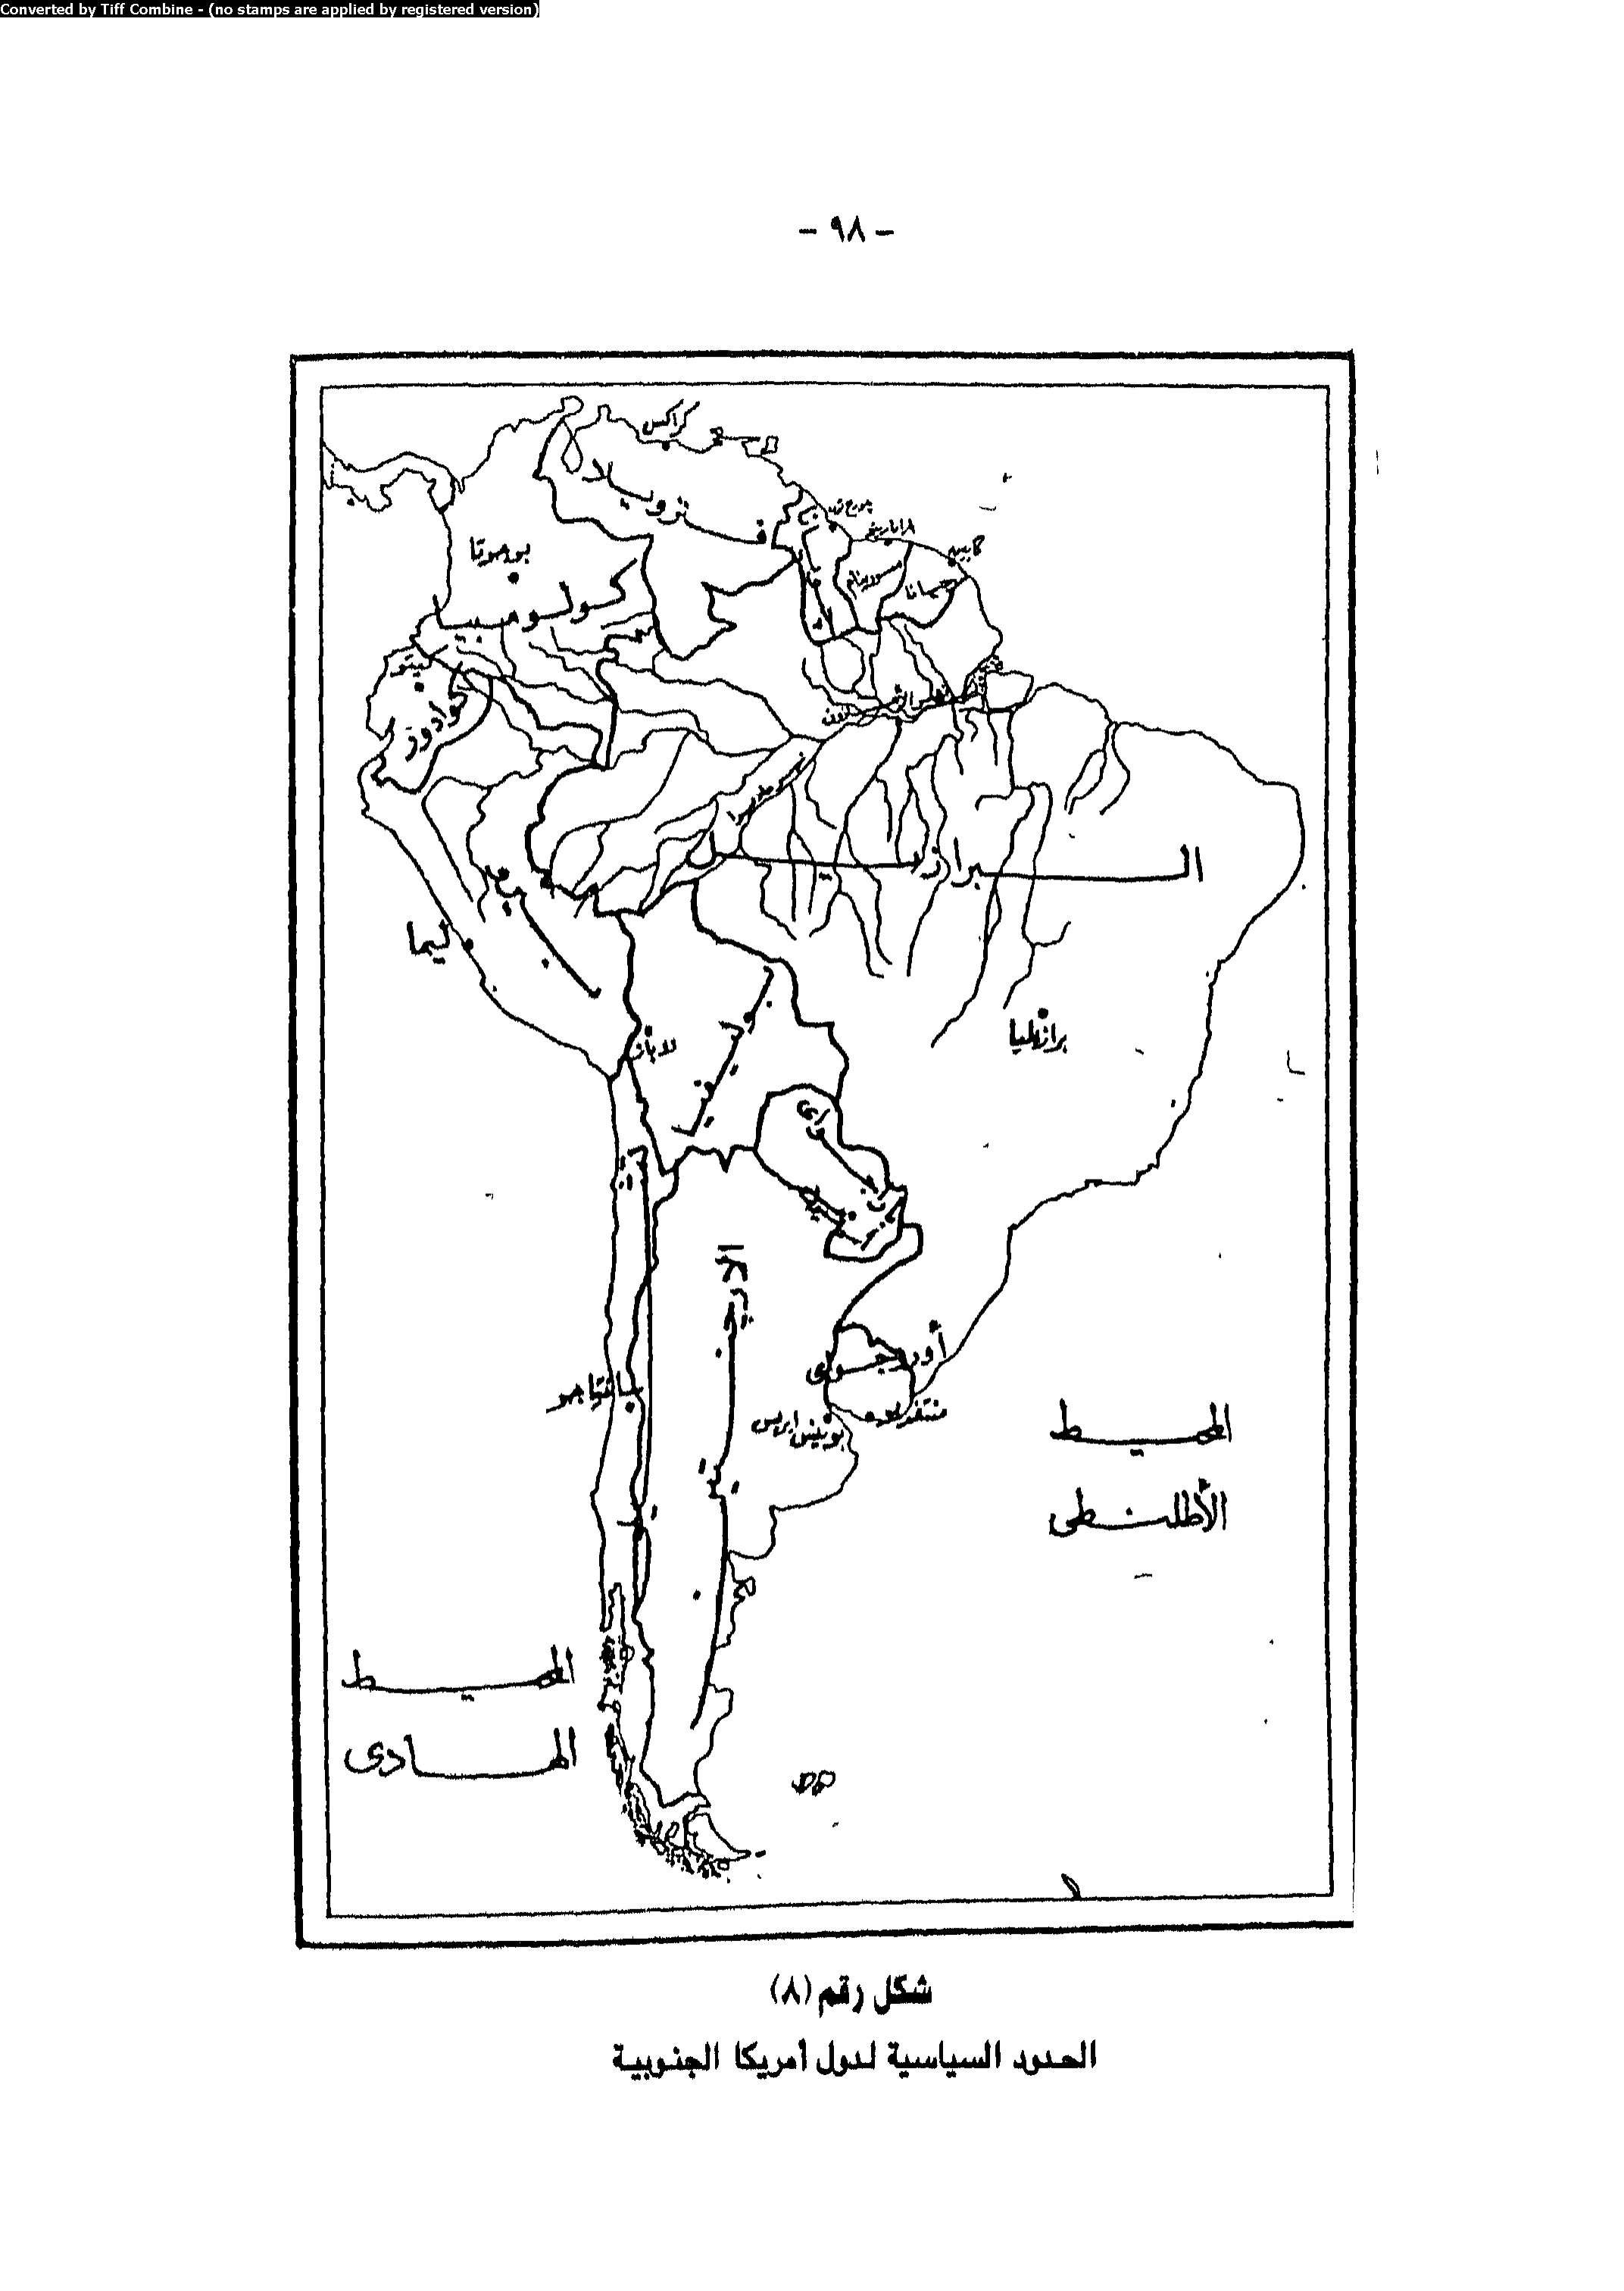 Converted by Tiff Combine - (no stamps are applied by registered version)
- ٩٨ -
كراكس
فنزويلا
بوجوتا
كولومبيا
سورينام
جيانا
كيتو
البرازيل
بيرو
ليما
برازيليا
لاباز
بوليفيا
أورجواى
سانتياجو
بوينس ايرس
المحيط
الأطلنطى
المحيط
الهادى
شكل رقم (٨)
الحدود السياسية لدول أمريكا الجنوبية